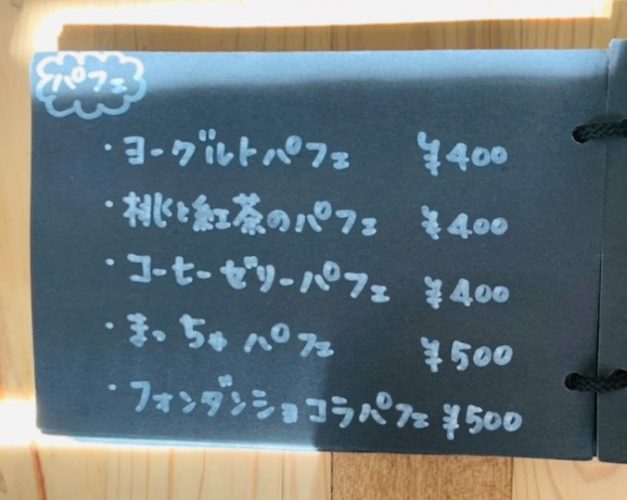 パフェ
・ヨーグルトパフェ ¥400
・桃と紅茶のパフェ ¥400
・コーヒーゼリーパフェ ¥400
・まっちゃパフェ ¥500
・フォンダンショコラパフェ ¥500